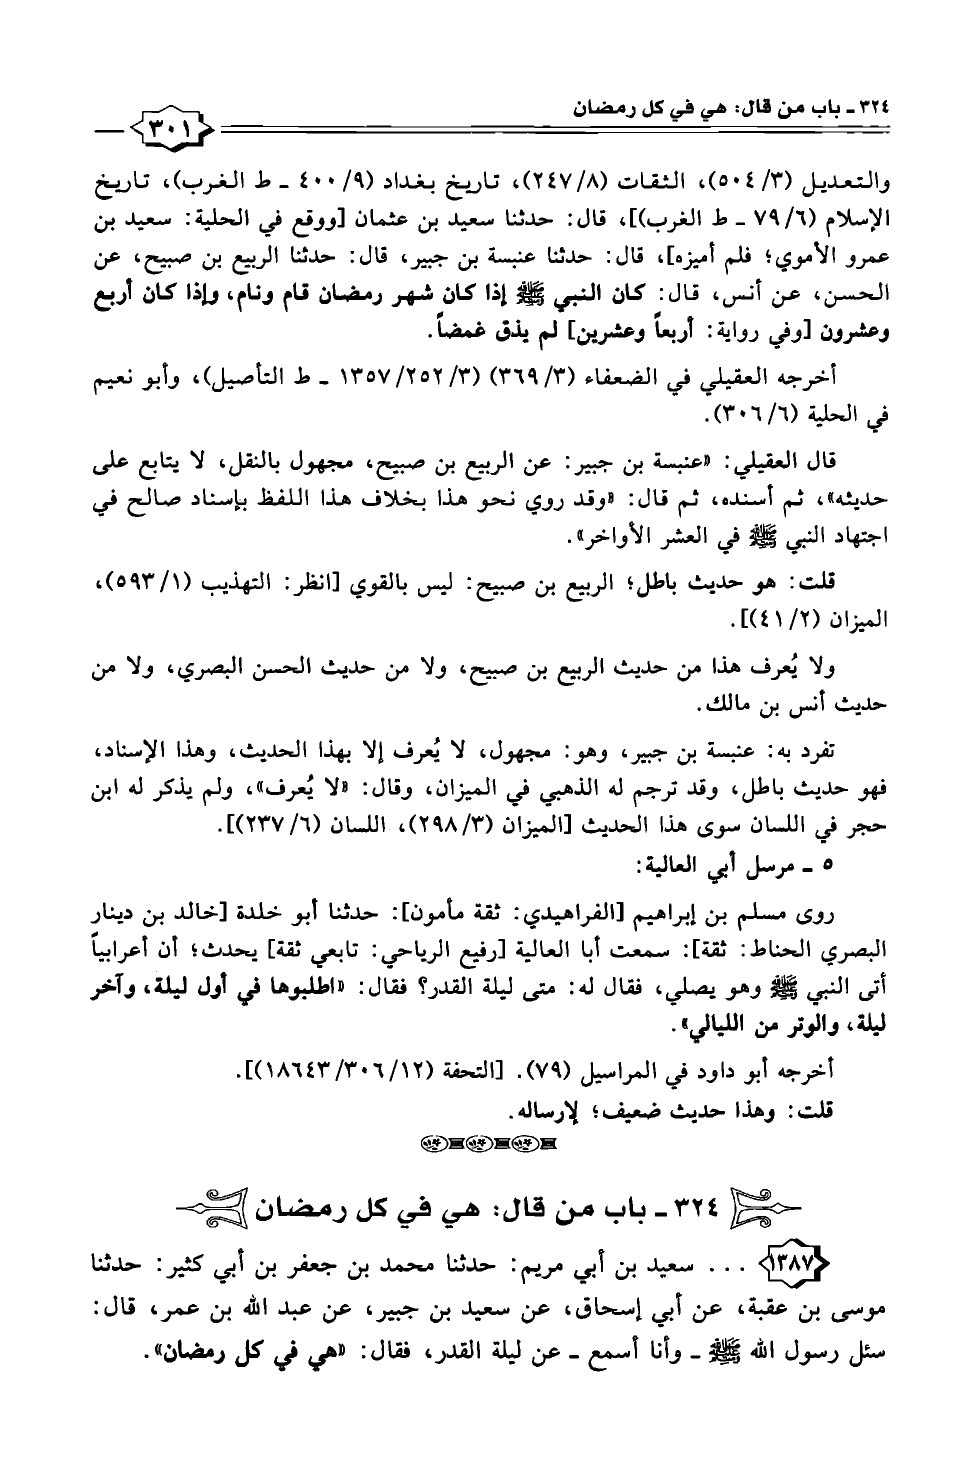 ٣٢٤ - باب من قال: هي في كل رمضان
٣٠١
والتعديل (٥٠٤/٣)، الثقات (٢٤٧/٨)، تاريخ بغداد (٤٠٠/٩ - ط الغرب)، تاريخ
الإسلام (٧٩/٦ - ط الغرب)]، قال: حدثنا سعيد بن عثمان [ووقع في الحلية: سعيد بن
عمرو الأموي؛ فلم أميزه]، قال: حدثنا عنبسة بن جبير، قال: حدثنا الربيع بن صبيح، عن
الحسن، عن أنس، قال: كان النبي ﷺ إذا كان شهر رمضان قام ونام، وإذا كان أربع
وعشرون [وفي رواية: أربعاً وعشرين] لم يذق غمضاً.
أخرجه العقيلي في الضعفاء (٣٦٩/٣) (١٣٥٧/٢٥٢/٣ - ط التأصيل)، وأبو نعيم
في الحلية (٣٠٦/٦).
قال العقيلي: «عنبسة بن جبير: عن الربيع بن صبيح، مجهول بالنقل، لا يتابع على
حديثه»، ثم أسنده، ثم قال: «وقد روي نحو هذا بخلاف هذا اللفظ بإسناد صالح في
اجتهاد النبي ﷺ في العشر الأواخر».
قلت: هو حديث باطل؛ الربيع بن صبيح: ليس بالقوي [انظر: التهذيب (٥٩٣/١)،
الميزان (٤١/٢)].
ولا يُعرف هذا من حديث الربيع بن صبيح، ولا من حديث الحسن البصري، ولا من
حديث أنس بن مالك.
تفرد به: عنبسة بن جبير، وهو: مجهول، لا يُعرف إلا بهذا الحديث، وهذا الإسناد،
فهو حديث باطل، وقد ترجم له الذهبي في الميزان، وقال: «لا يُعرف»، ولم يذكر له ابن
حجر في اللسان سوى هذا الحديث [الميزان (٢٩٨/٣)، اللسان (٢٣٧/٦)].
٥ - مرسل أبي العالية:
روى مسلم بن إبراهيم [الفراهيدي: ثقة مأمون]: حدثنا أبو خلدة [خالد بن دينار
البصري الحناط: ثقة]: سمعت أبا العالية [رفيع الرياحي: تابعي ثقة] يحدث؛ أن أعرابياً
أتى النبي ﷺ وهو يصلي، فقال له: متى ليلة القدر؟ فقال: «اطلبوها في أول ليلة، وآخر
ليلة، والوتر من الليالي».
أخرجه أبو داود في المراسيل (٧٩). [التحفة (١٨٦٤٣/٣٠٦/١٢)].
قلت: وهذا حديث ضعيف؛ لإرساله.
٣٢٤ - باب من قال: هي في كل رمضان
١٣٨٧ ... سعيد بن أبي مريم: حدثنا محمد بن جعفر بن أبي كثير: حدثنا
موسى بن عقبة، عن أبي إسحاق، عن سعيد بن جبير، عن عبد الله بن عمر، قال:
سئل رسول الله ﷺ - وأنا أسمع - عن ليلة القدر، فقال: «هي في كل رمضان».